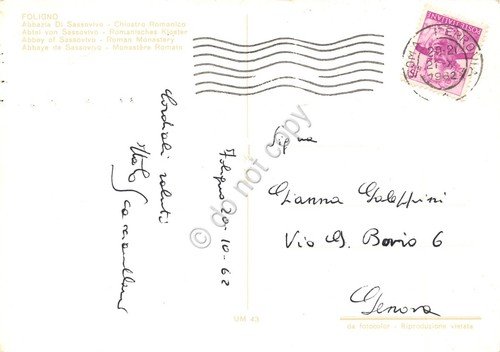 FOLIGNO
Abbazia Di Sassovivo - Chiostro Romanico
Abtei von Sassovivo - Romanisches Kloster
Abbey of Sassovivo - Roman Monastery
Abbaye de Sassovivo - Monastère Romain
Cordiali saluti
Italo
Foligno 20-10-62
Gianna Galeppini
Via G. Bovio 6
Genova
UM 43
da fotocolor - Riproduzione vietata
1962
do not copy